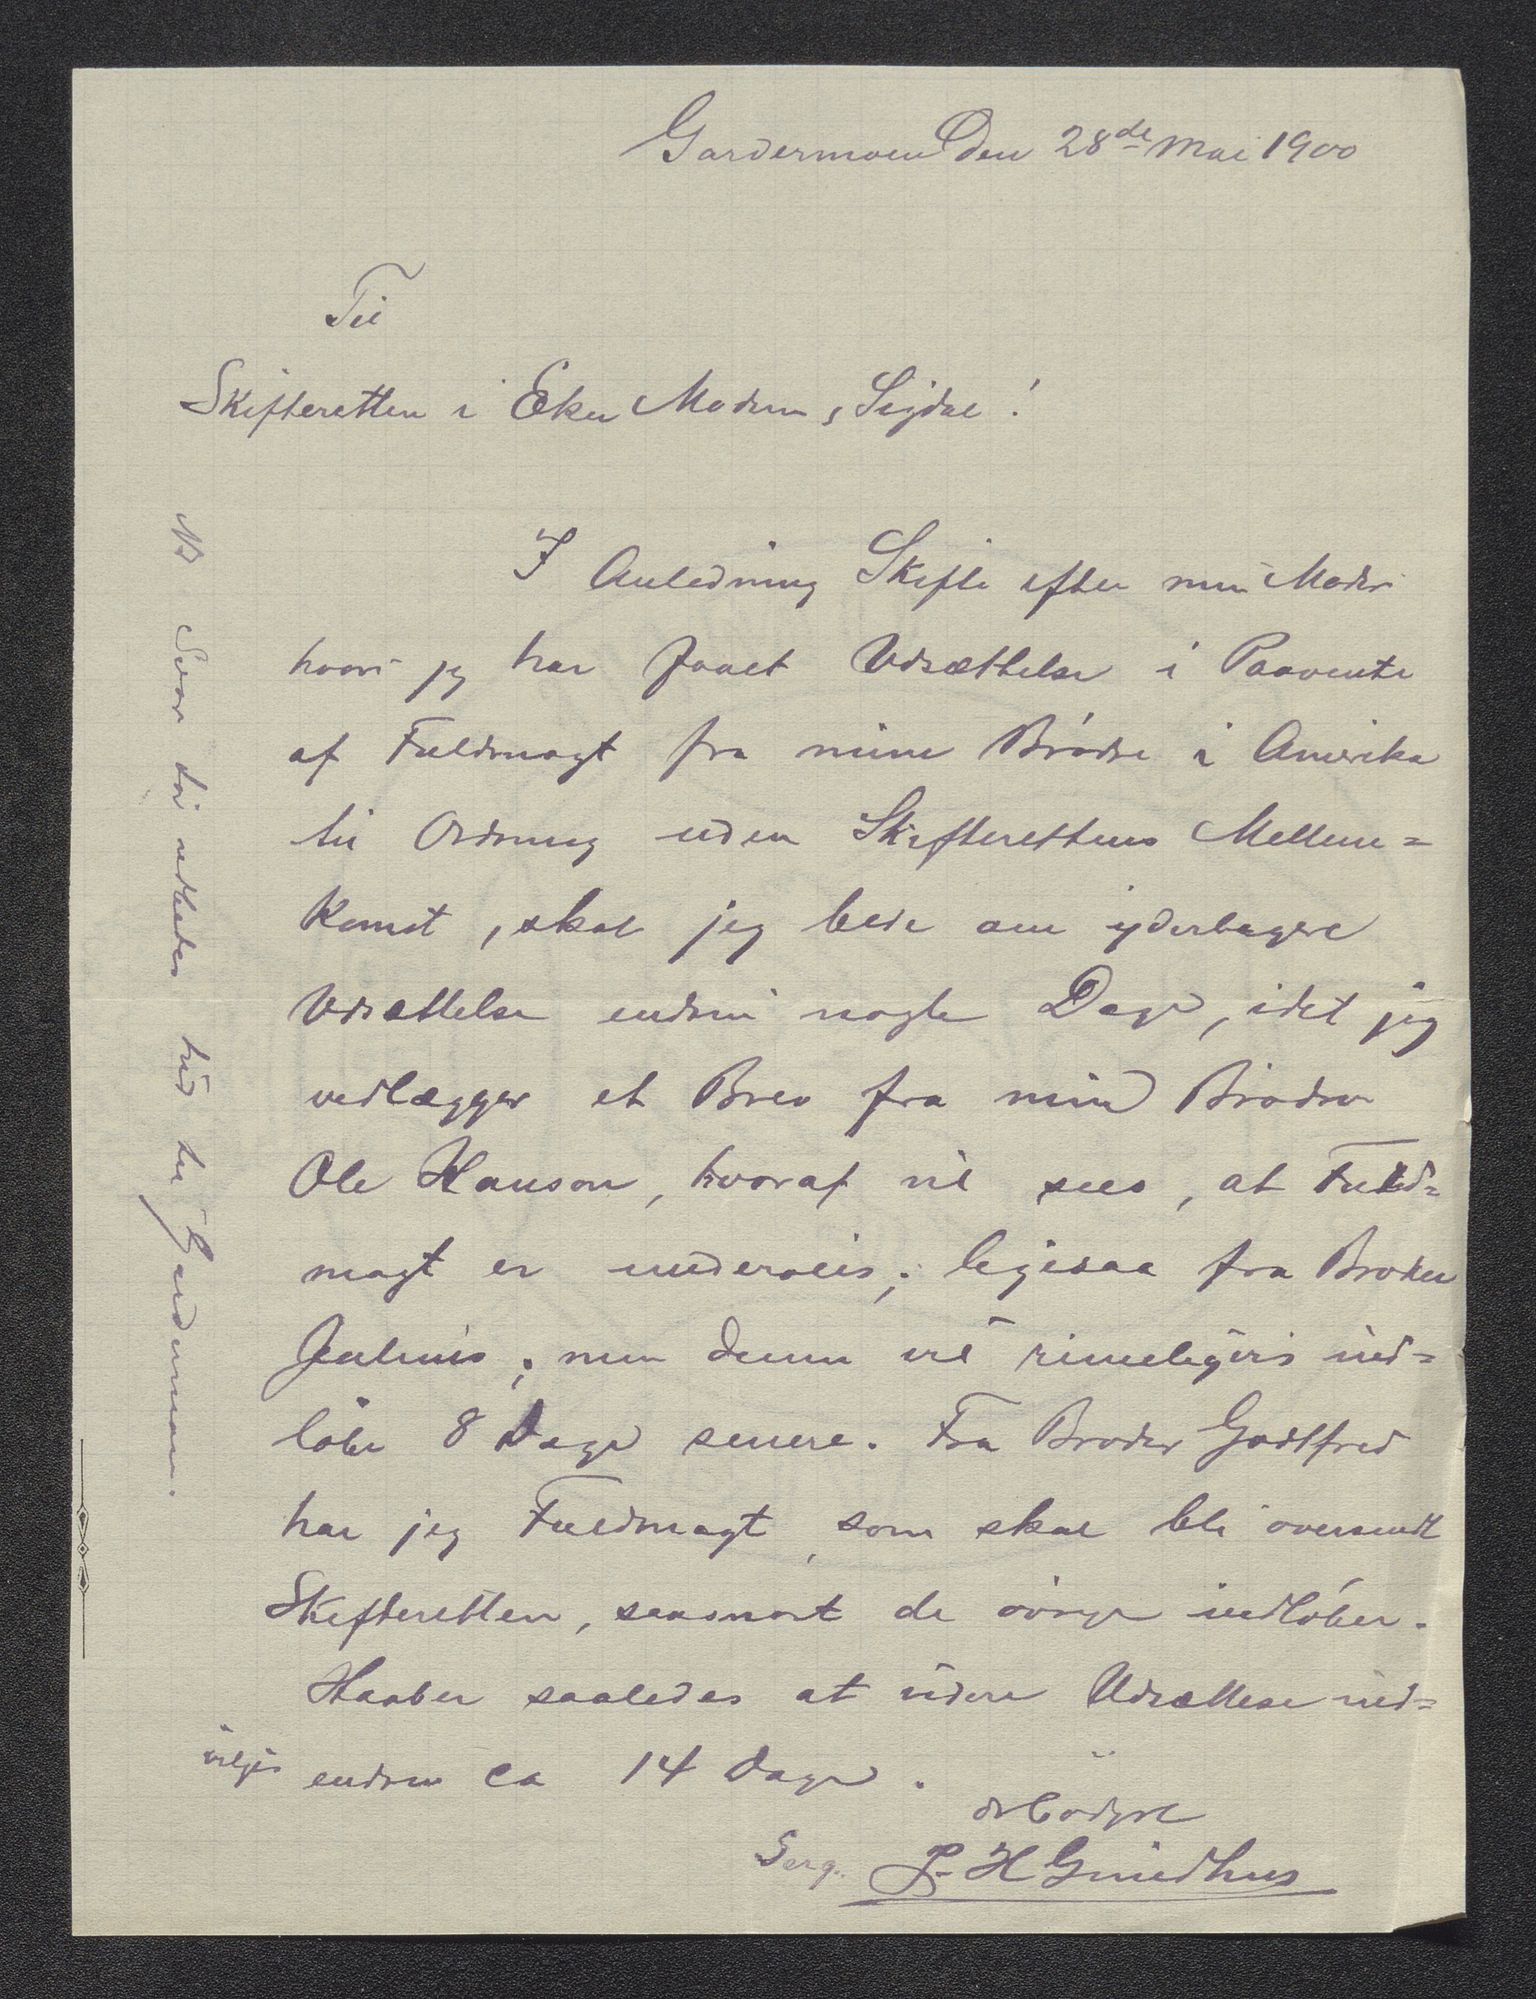 Gardermoen Den 28de Mai 1900
Til
Skifteretten i Eker Modum, Sigdal!
I Anledning Skifte efter min Moder
hvori jeg har faaet Udsættelse i Paavente
af Fuldmagt fra mine Brødre i Amerika
til Ordning uden Skifterettens Mellem=
komst, skal jeg bede om yderligere
Udsættelse endnu nogle Dage, idet jeg
vedlægger et Brev fra min Broder
Ole Hanson, hvoraf vil sees, at Fuld=
magt er underveis; ligesaa fra Broder
Julius; men denne vil rimeligvis ind=
løbe 8 Dage senere. Fra Broder Godtfred
har jeg Fuldmagt, som skal bli oversendt
Skifteretten, saasnart de øvrige indløber.
Haaber saaledes at videre Udsættelse ind=
vilges endnu ca 14 Dage.
ærbødigst
Serg. H
NB Svar udbedes hid til Gardermoen.